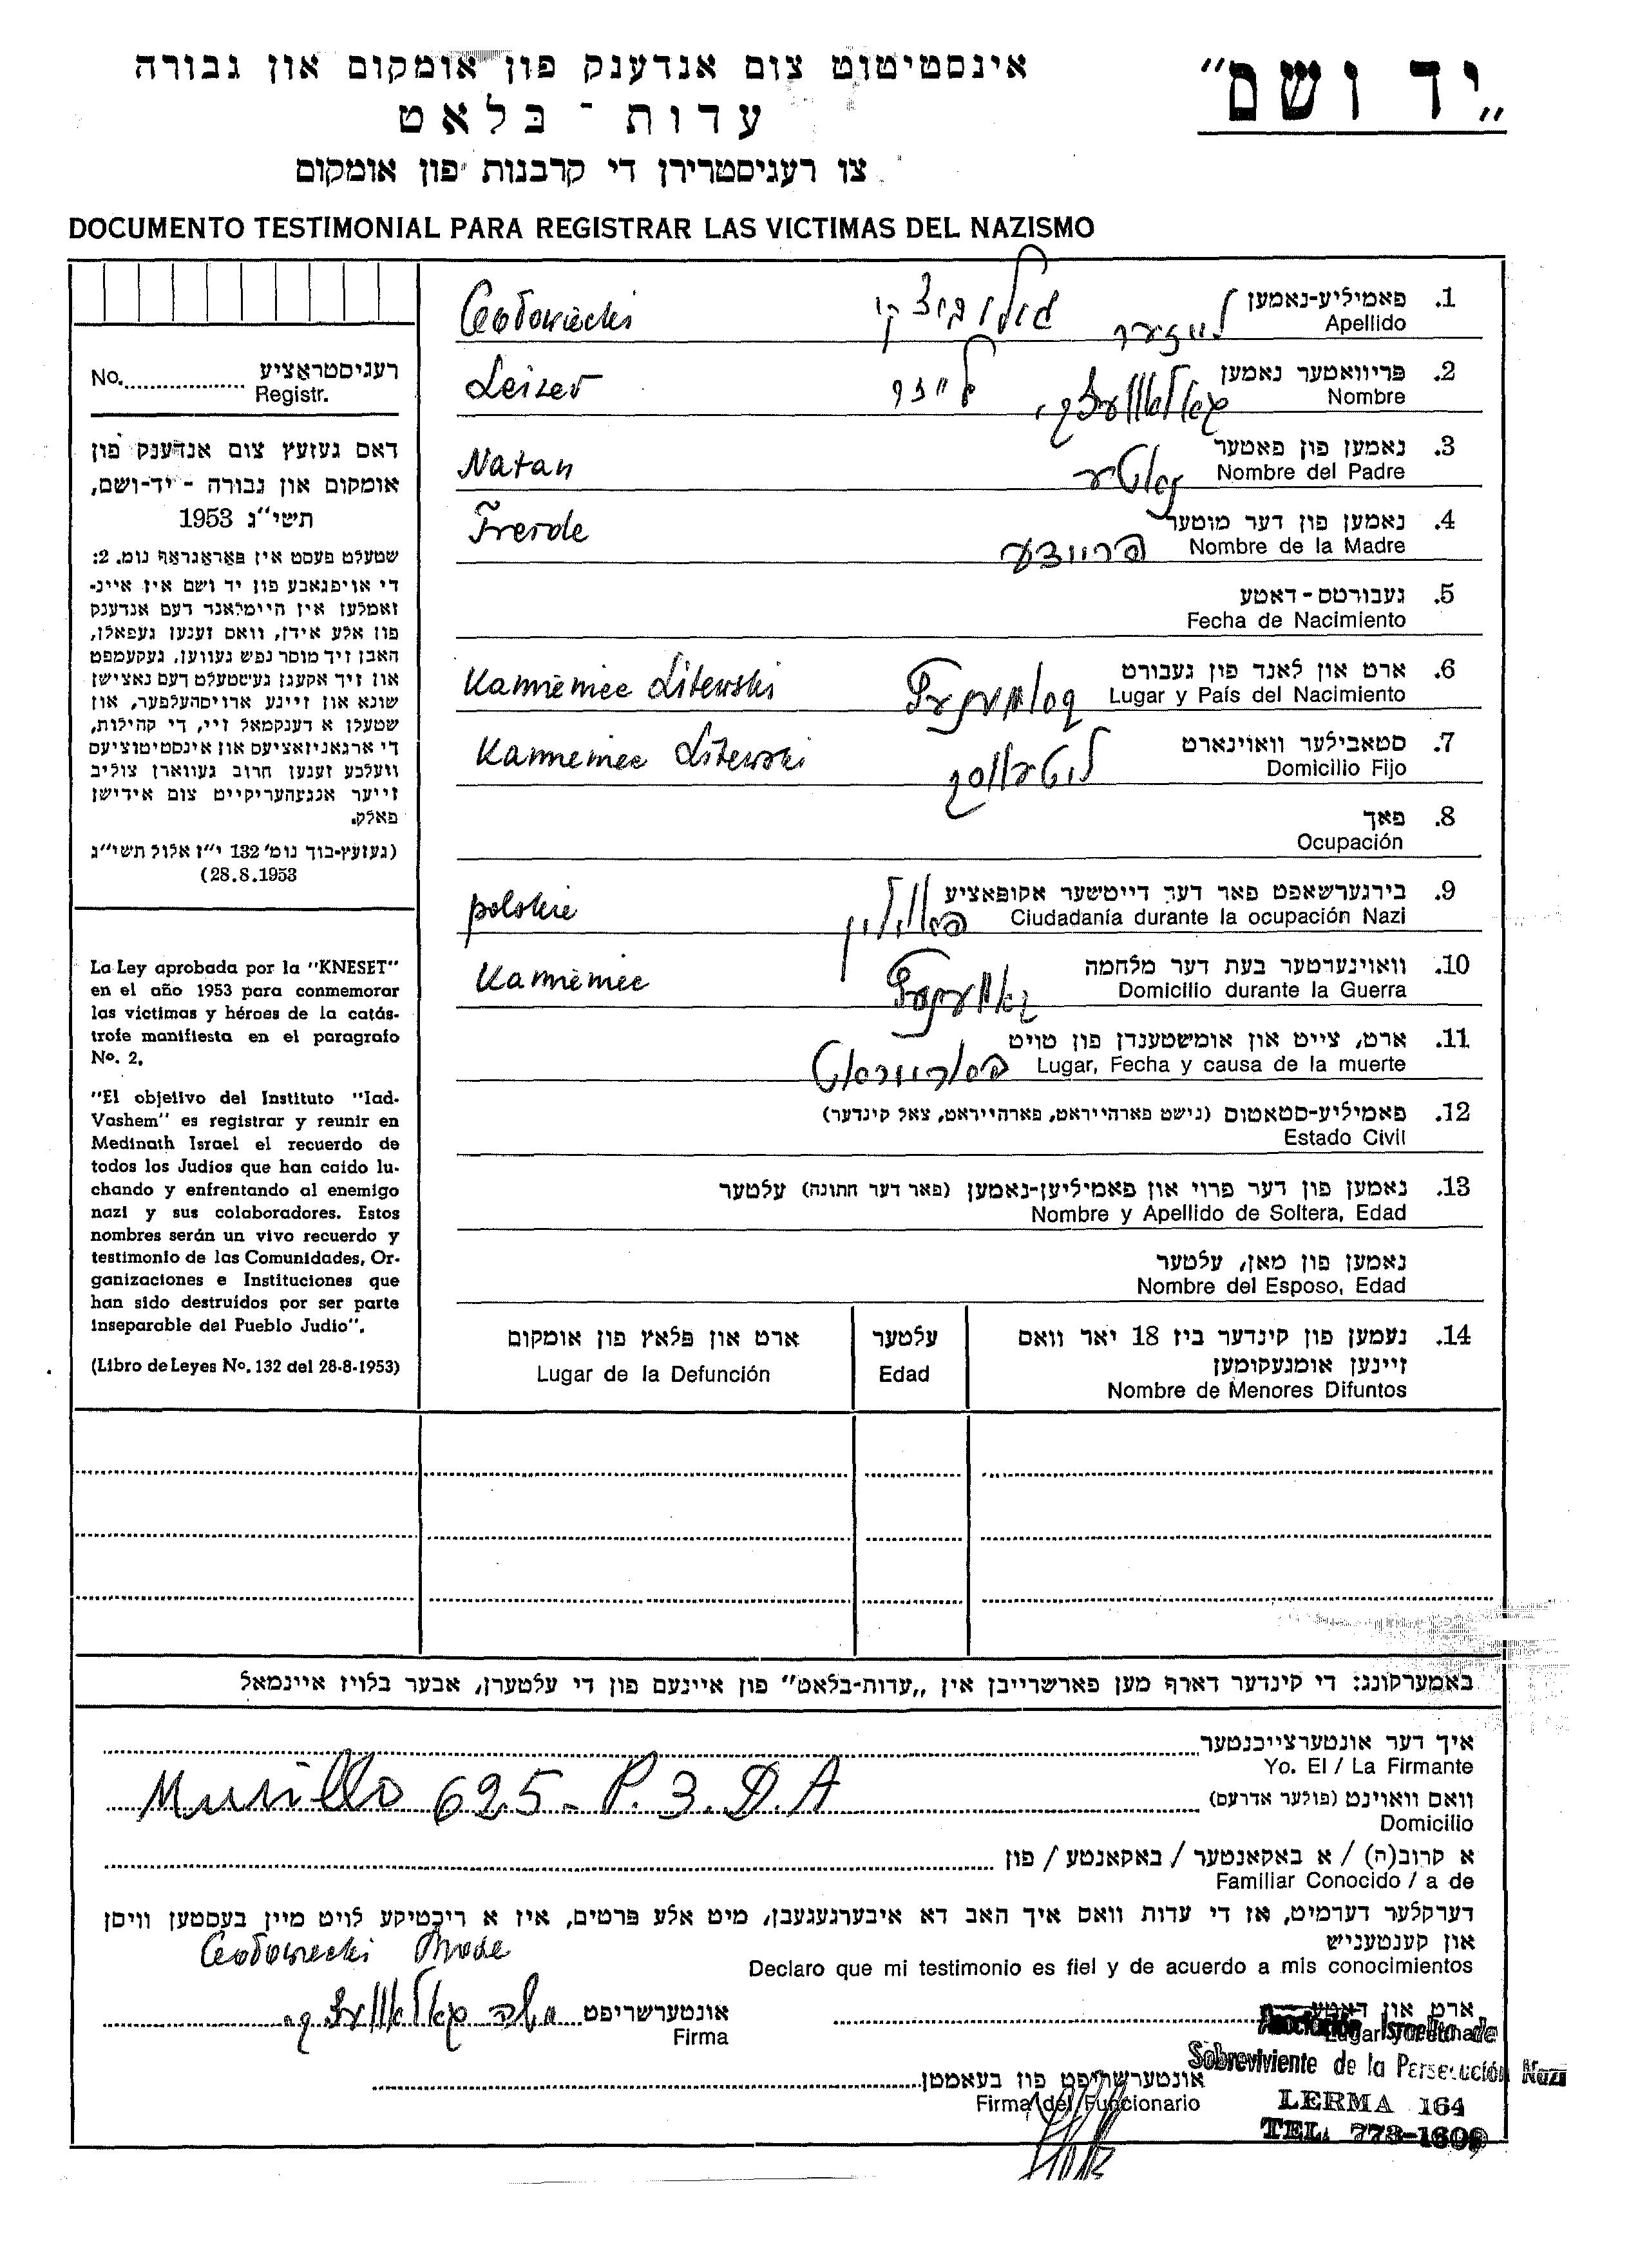 „יד ושם"
אינסטיטוט צום אנדענק פון אומקום און גבורה
עדות - בלאט
צו רעגיסטרירן די קרבנות פון אומקום
DOCUMENTO TESTIMONIAL PARA REGISTRAR LAS VICTIMAS DEL NAZISMO
רעגיסטראציע
No. Registr.
דאס געזעץ צום אנדענק פון
אומקום און גבורה - יד-ושם,
תשי"ג 1953
שטעלט פעסט אין פאראגראף נומ. 2:
די אויפגאבע פון יד ושם איז איינ-
זאמלען אין היימלאנד דעם אנדענק
פון אלע אידן, וואס זענען געפאלן,
האבן זיך מוסר נפש געווען, געקעמפט
און זיך אקעגן געשטעלט דעם נאצישן
שונא און זיינע ארויסהעלפער, און
שטעלן א דענקמאל זיי, די קהילות,
די ארגאניזאציעס און אינסטיטוציעס
וועלכע זענען חרוב געווארן צוליב
זייער אנגעהעריקייט צום אידישן
פאלק.
(געזעץ-בוך נומ' 132 י"ז אלול תשי"ג
28.8.1953)
La Ley aprobada por la "KNESET"
en el año 1953 para conmemorar
las victimas y héroes de la catás-
trofe manifiesta en el paragrafo
Nº. 2.
"El objetivo del Instituto "Iad-
Vashem" es registrar y reunir en
Medinath Israel el recuerdo de
todos los Judios que han caido lu-
chando y enfrentando al enemigo
nazi y sus colaboradores. Estos
nombres serán un vivo recuerdo y
testimonio de las Comunidades, Or-
ganizaciones e Instituciones que
han sido destruidos por ser parte
inseparable del Pueblo Judio".
(Libro de Leyes Nº. 132 del 28-8-1953)
1. פאמיליע-נאמען
Apellido
לייזער
2. פריוואטער נאמען
Nombre
Leizer
3. נאמען פון פאטער
Nombre del Padre
Natan
4. נאמען פון דער מוטער
Nombre de la Madre
פריידע
5. געבורטס-דאטע
Fecha de Nacimiento
6. ארט און לאנד פון געבורט
Lugar y País del Nacimiento
Kamieniec Litewski
7. סטאבילער וואוינארט
Domicilio Fijo
Kamieniec Litewski
8. פאך
Ocupación
9. בירגערשאפט פאר דער דייטשער אקופאציע
Ciudadanía durante la ocupación Nazi
polskie
10. וואוינערטער בעת דער מלחמה
Domicilio durante la Guerra
Kamieniec
11. ארט, צייט און אומשטענדן פון טויט
Lugar, Fecha y causa de la muerte
12. פאמיליע-סטאטוס (נישט פארהייראט, פארהייראט, צאל קינדער)
Estado Civil
13. נאמען פון דער פרוי און פאמיליען-נאמען (פאר דער חתונה) עלטער
Nombre y Apellido de Soltera, Edad
נאמען פון מאן, עלטער
Nombre del Esposo, Edad
14. נעמען פון קינדער ביז 18 יאר וואס
זיינען אומגעקומען
Nombre de Menores Difuntos
עלטער
Edad
ארט און פלאץ פון אומקום
Lugar de la Defunción
באמערקונג: די קינדער דארף מען פארשרייבן אין „עדות-בלאט" פון איינעם פון די עלטערן, אבער בלויז איינמאל
איך דער אונטערצייכנטער
Yo. El / La Firmante
וואס וואוינט (פולער אדרעס)
Domicilio
Murillo 625 - P. 3. D. A
א קרוב(ה) / א באקאנטער / באקאנטע / פון
Familiar Conocido / a de
דערקלער דערמיט, אז די עדות וואס איך האב דא איבערגעגעבן, מיט אלע פרטים, איז א ריכטיקע לויט מיין בעסטען וויסן
און קענטעניש
Declaro que mi testimonio es fiel y de acuerdo a mis conocimientos
ארט און דאטע
אונטערשריפט
Firma
אונטערשריפט פון בעאמטן
Firma del Funcionario
Asociación Israelita de
Sobreviviente de la Persecución Nazi
LERMA 164
TEL. 773-1606